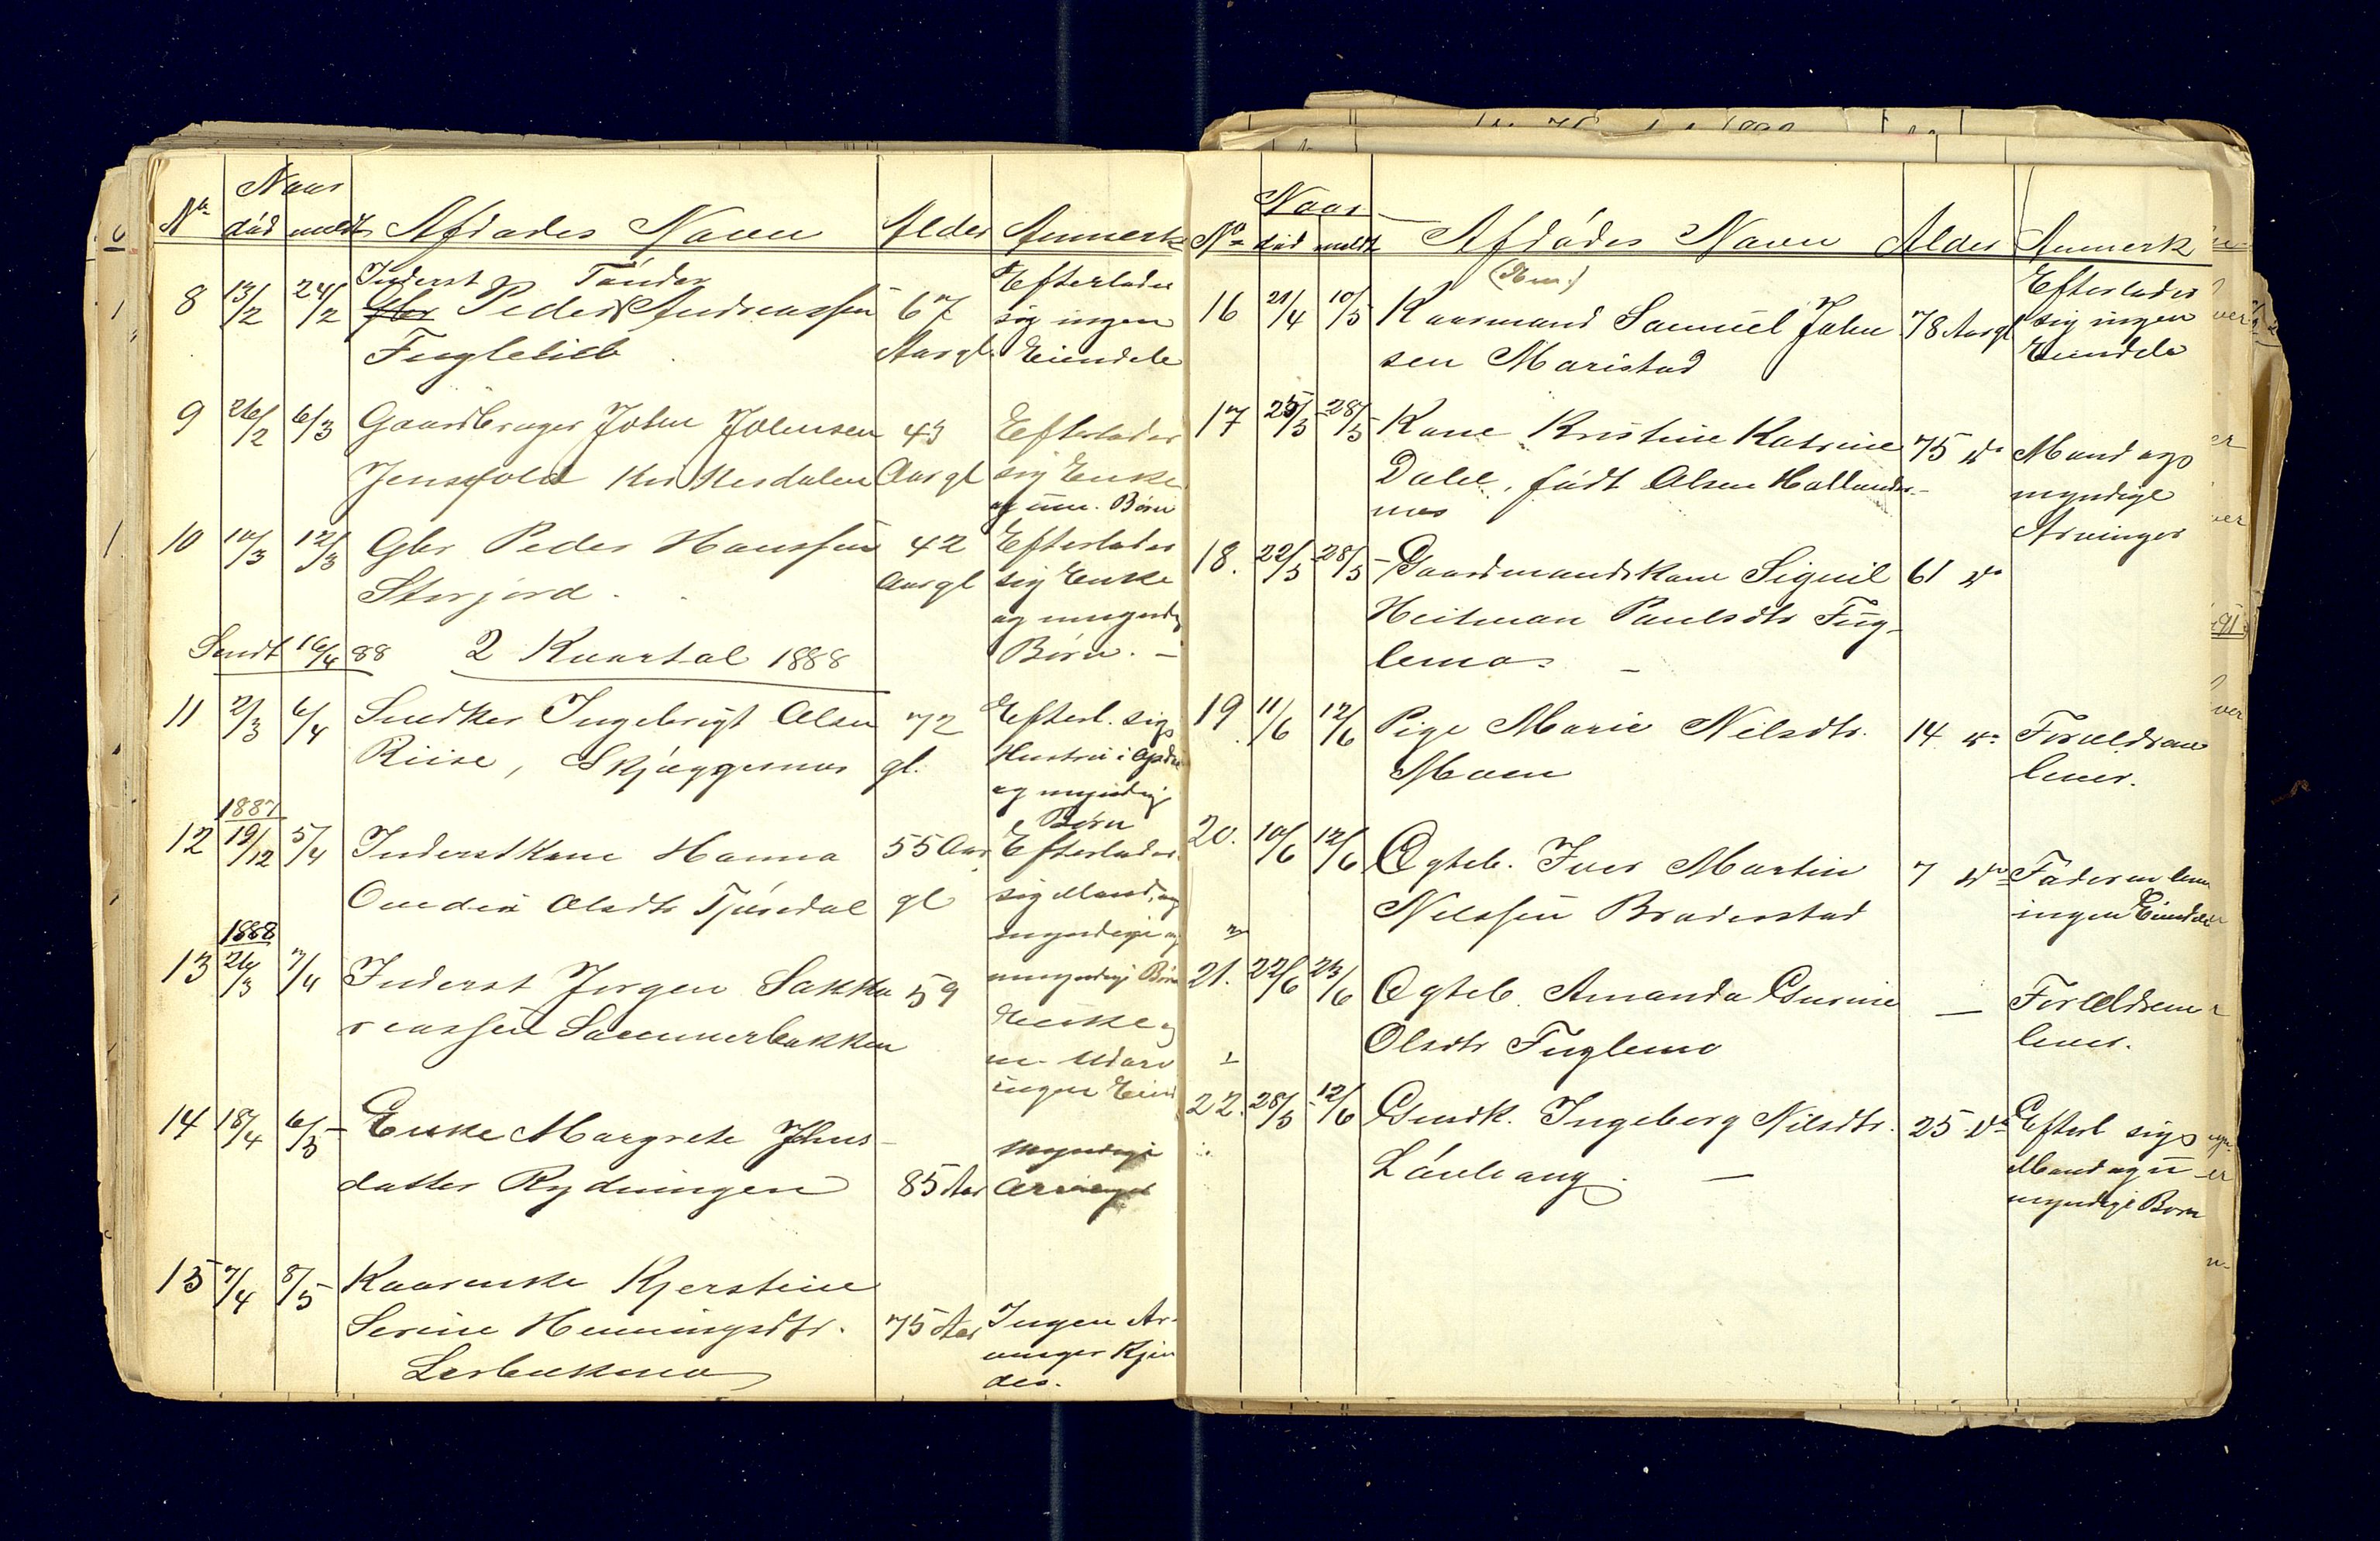 Naar
No død meldt Afdødes Navn Alder Anmerk
Inderst Tønder
8 13/2 24/2 Gbr Peder Andreassen 67 Efterlader
Fuglelieb Aar gl sig ingen
Eiendele
9 26/2 6/3 Gaardbruger John Johnsen 43 Efterlader
Jensvold Aar gl sig Enke
og um. Børn
10 10/3 12/3 Gbr Peder Hanssen 42 Efterlader
Storjord Aar gl sig Enke
og umyndig
Børn.
Sendt 16/4 88 2 Kvartal 1888
11 2/3 6/4 Snedker Ingebrigt Olsen 72 Efterl. sig
Riise, Skjæggesnæs gl. Hustru i
og myndig
Børn
1887
12 19/12 5/4 Inderstkone Hanna 55 Aar Efterlader
Olsdtr gl sig Mand, og
myndige og
umyndig Børn
1888
13 26/3 7/4 Inderst Jørgen Sakka 59
reassen Sommerbakken Enke og
ingen Eien
14 18/4 6/5 Enke Margrete Jhns-
datter Rydningen 85 Aar Myndige
Arvinger
15 7/4 8/5 Kaarenke Kjerstine
Serine Henningsdtr. 75 Aar Ingen Ar-
vinger Kjen
des.
Naar
No død meldt Afdødes Navn Alder Anmerk
16 21/4 10/5 Kaarmand Samuel John 78 Aar gl Efterlader
sen Maristad sig ingen
Eiendele
17 28/5 Kone Kristine Katrine 75 do Mand og
Dahl, født Olsen Hollands- myndige
næs Arvinger
18. 22/5 28/5 Gaardmandskone Signil 61 do
Heitman Paulsdtr Fug-
lemo
19 11/6 12/6 Pige Marie Nilsdtr. 14 do Forældrene
Moen lever.
20. 10/6 12/6 Ægteb. Iver Martin 7 do Faderen lever
Nilssen Braderstad ingen Eiendele
21. 22/6 23/6 Ægteb. Amanda Gurine — Forældrene
Olsdtr Fuglemo lever.
22. 28/5 12/6 Gmdk. Ingeborg Nilsdtr. 25 do Efterl sig
Mand og u-
myndige Børn